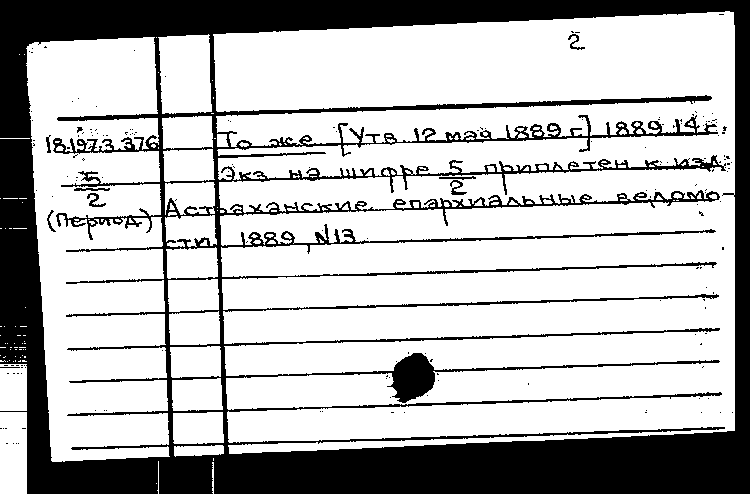 2
18.197.3.376 То же [Утв. 12 мая 1889 г.] 1889. 14 с.
5/2 Экз. на шифре 5/2 приплетен к изд.
(Период.) Астраханские епархиальные ведомо-
сти. 1889, N13